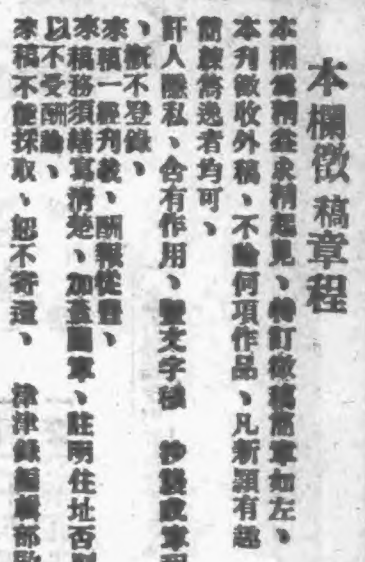 本欄徵稿章程
本欄爲精益求精起見、特訂徵稿簡章如左、
本刊徵收外稿、不論何項作品、凡新穎有趣
簡練雋逸者均可、
訐人隱私、含有作用、暨文字穢 抄襲
、概不登錄、
來稿一經刊載、酬報從豐、
來稿務須繕寫清楚、加蓋圖章、註明住址否則
以不受酬論、
來稿不能採取、恕不寄還、 津津錄編輯部啟